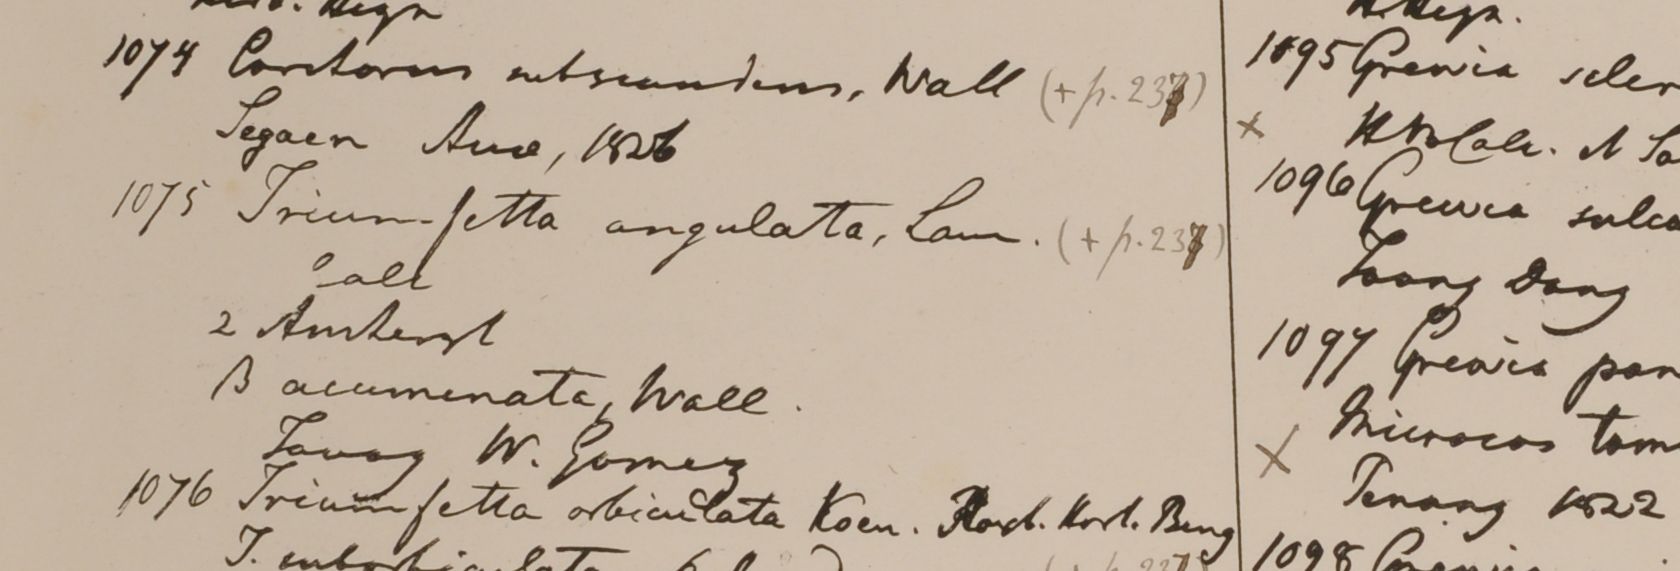 1074 Corchorus subscandens, Wall (+ p. 237)
Segaen Ava, 1826
1075 Triumfetta angulata, Lam. (+ p. 237)
Calc
2 Amherst
β acuminata, Wall.
Tavoy W. Gomez
1076 Triumfetta orbiculata Koen. Roxb. Hort. Beng
T. suborbiculata
1095 Grewia scler
× H. B. Calc.
1096 Grewia sulca
Toong Dong
1097 Grewia pan
Microcos tom
× Penang 1822
1098 Grewia